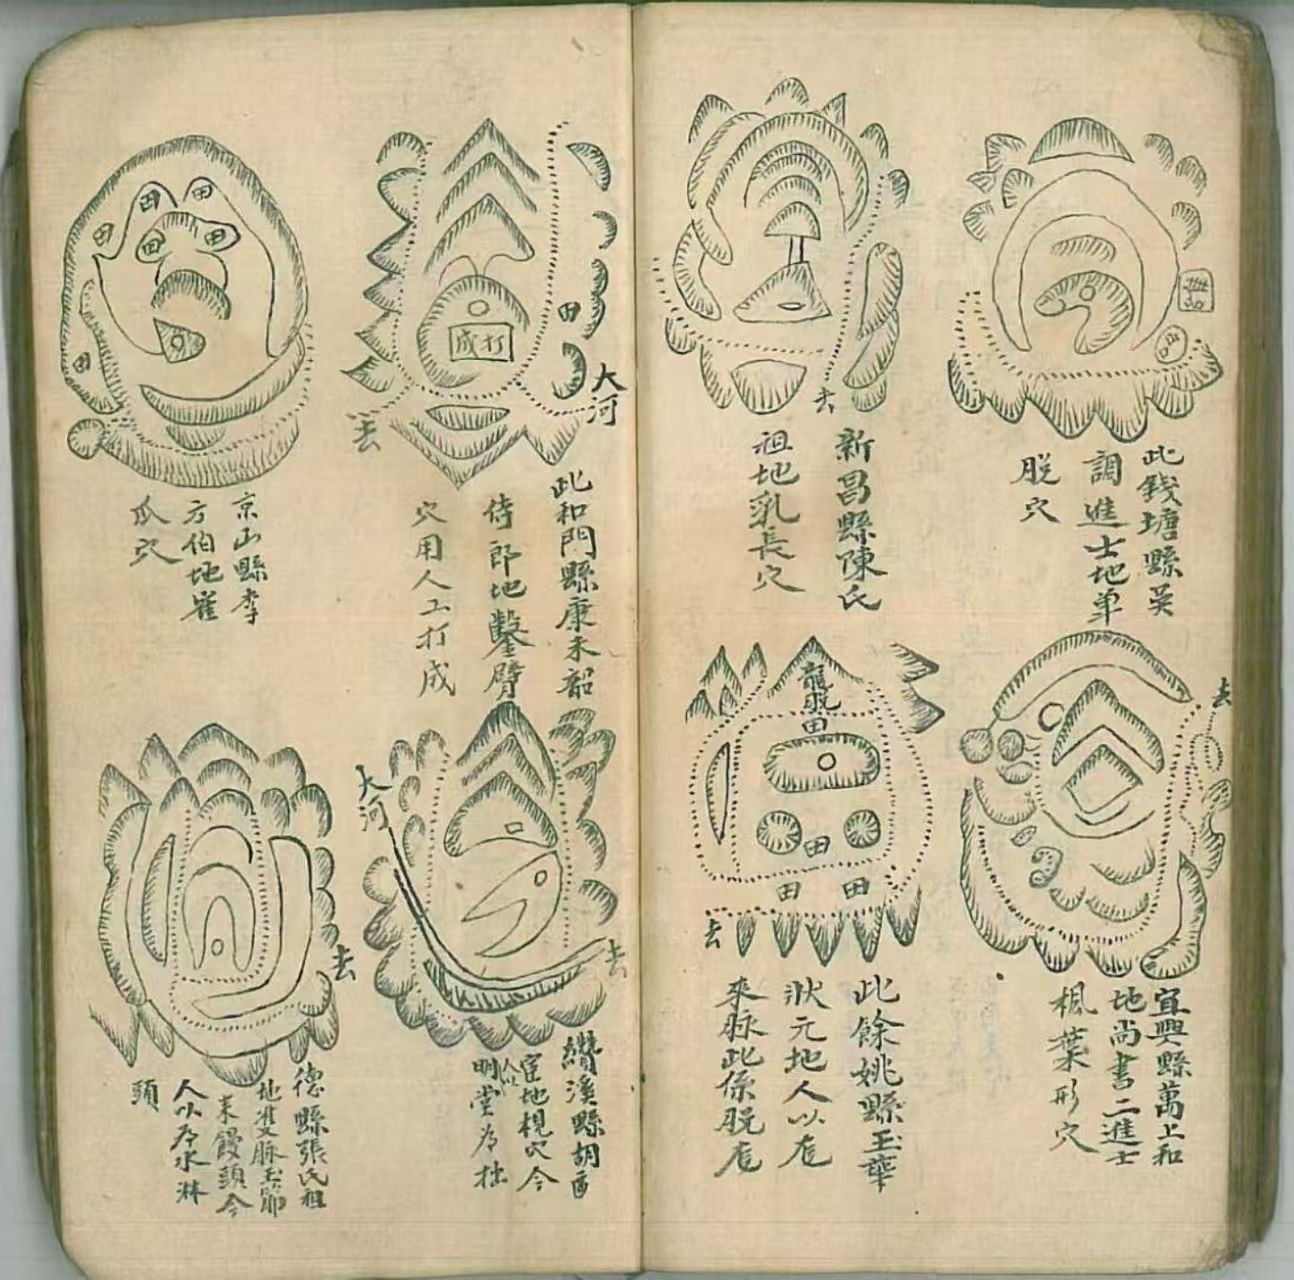 此錢塘縣吳
調進士地单
脫穴
新昌縣陳氏
祖地乳長穴
去
宜興縣萬上和
地尚書二進士
楓葉形穴
去
龍
田
田
田
田
去
此餘姚縣玉華
狀元地人以㡯
來脉此係脫㡯
大河
田
打成
去
此和門縣康未韶
侍郎地鑿臂
穴用人工打成
田
田
田
田
田
田
京山縣李
方伯地崔
爪穴
大河
去
纘溪縣胡
宦地梘穴今
人以
明堂為拙
去
德縣張氏祖
地雙脉玉節
末饅頭今
人以為水淋
頭